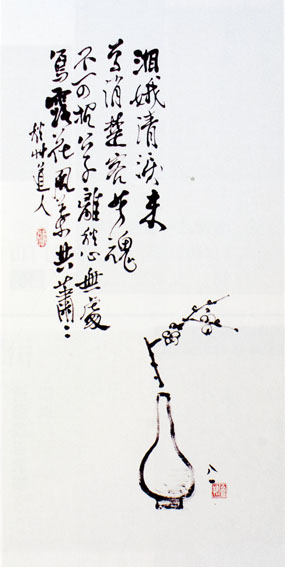 湘娥清淚未
曾消楚客芳魂
不可招公子離愁無處
寫露花風葉共蕭〻
道人
八一